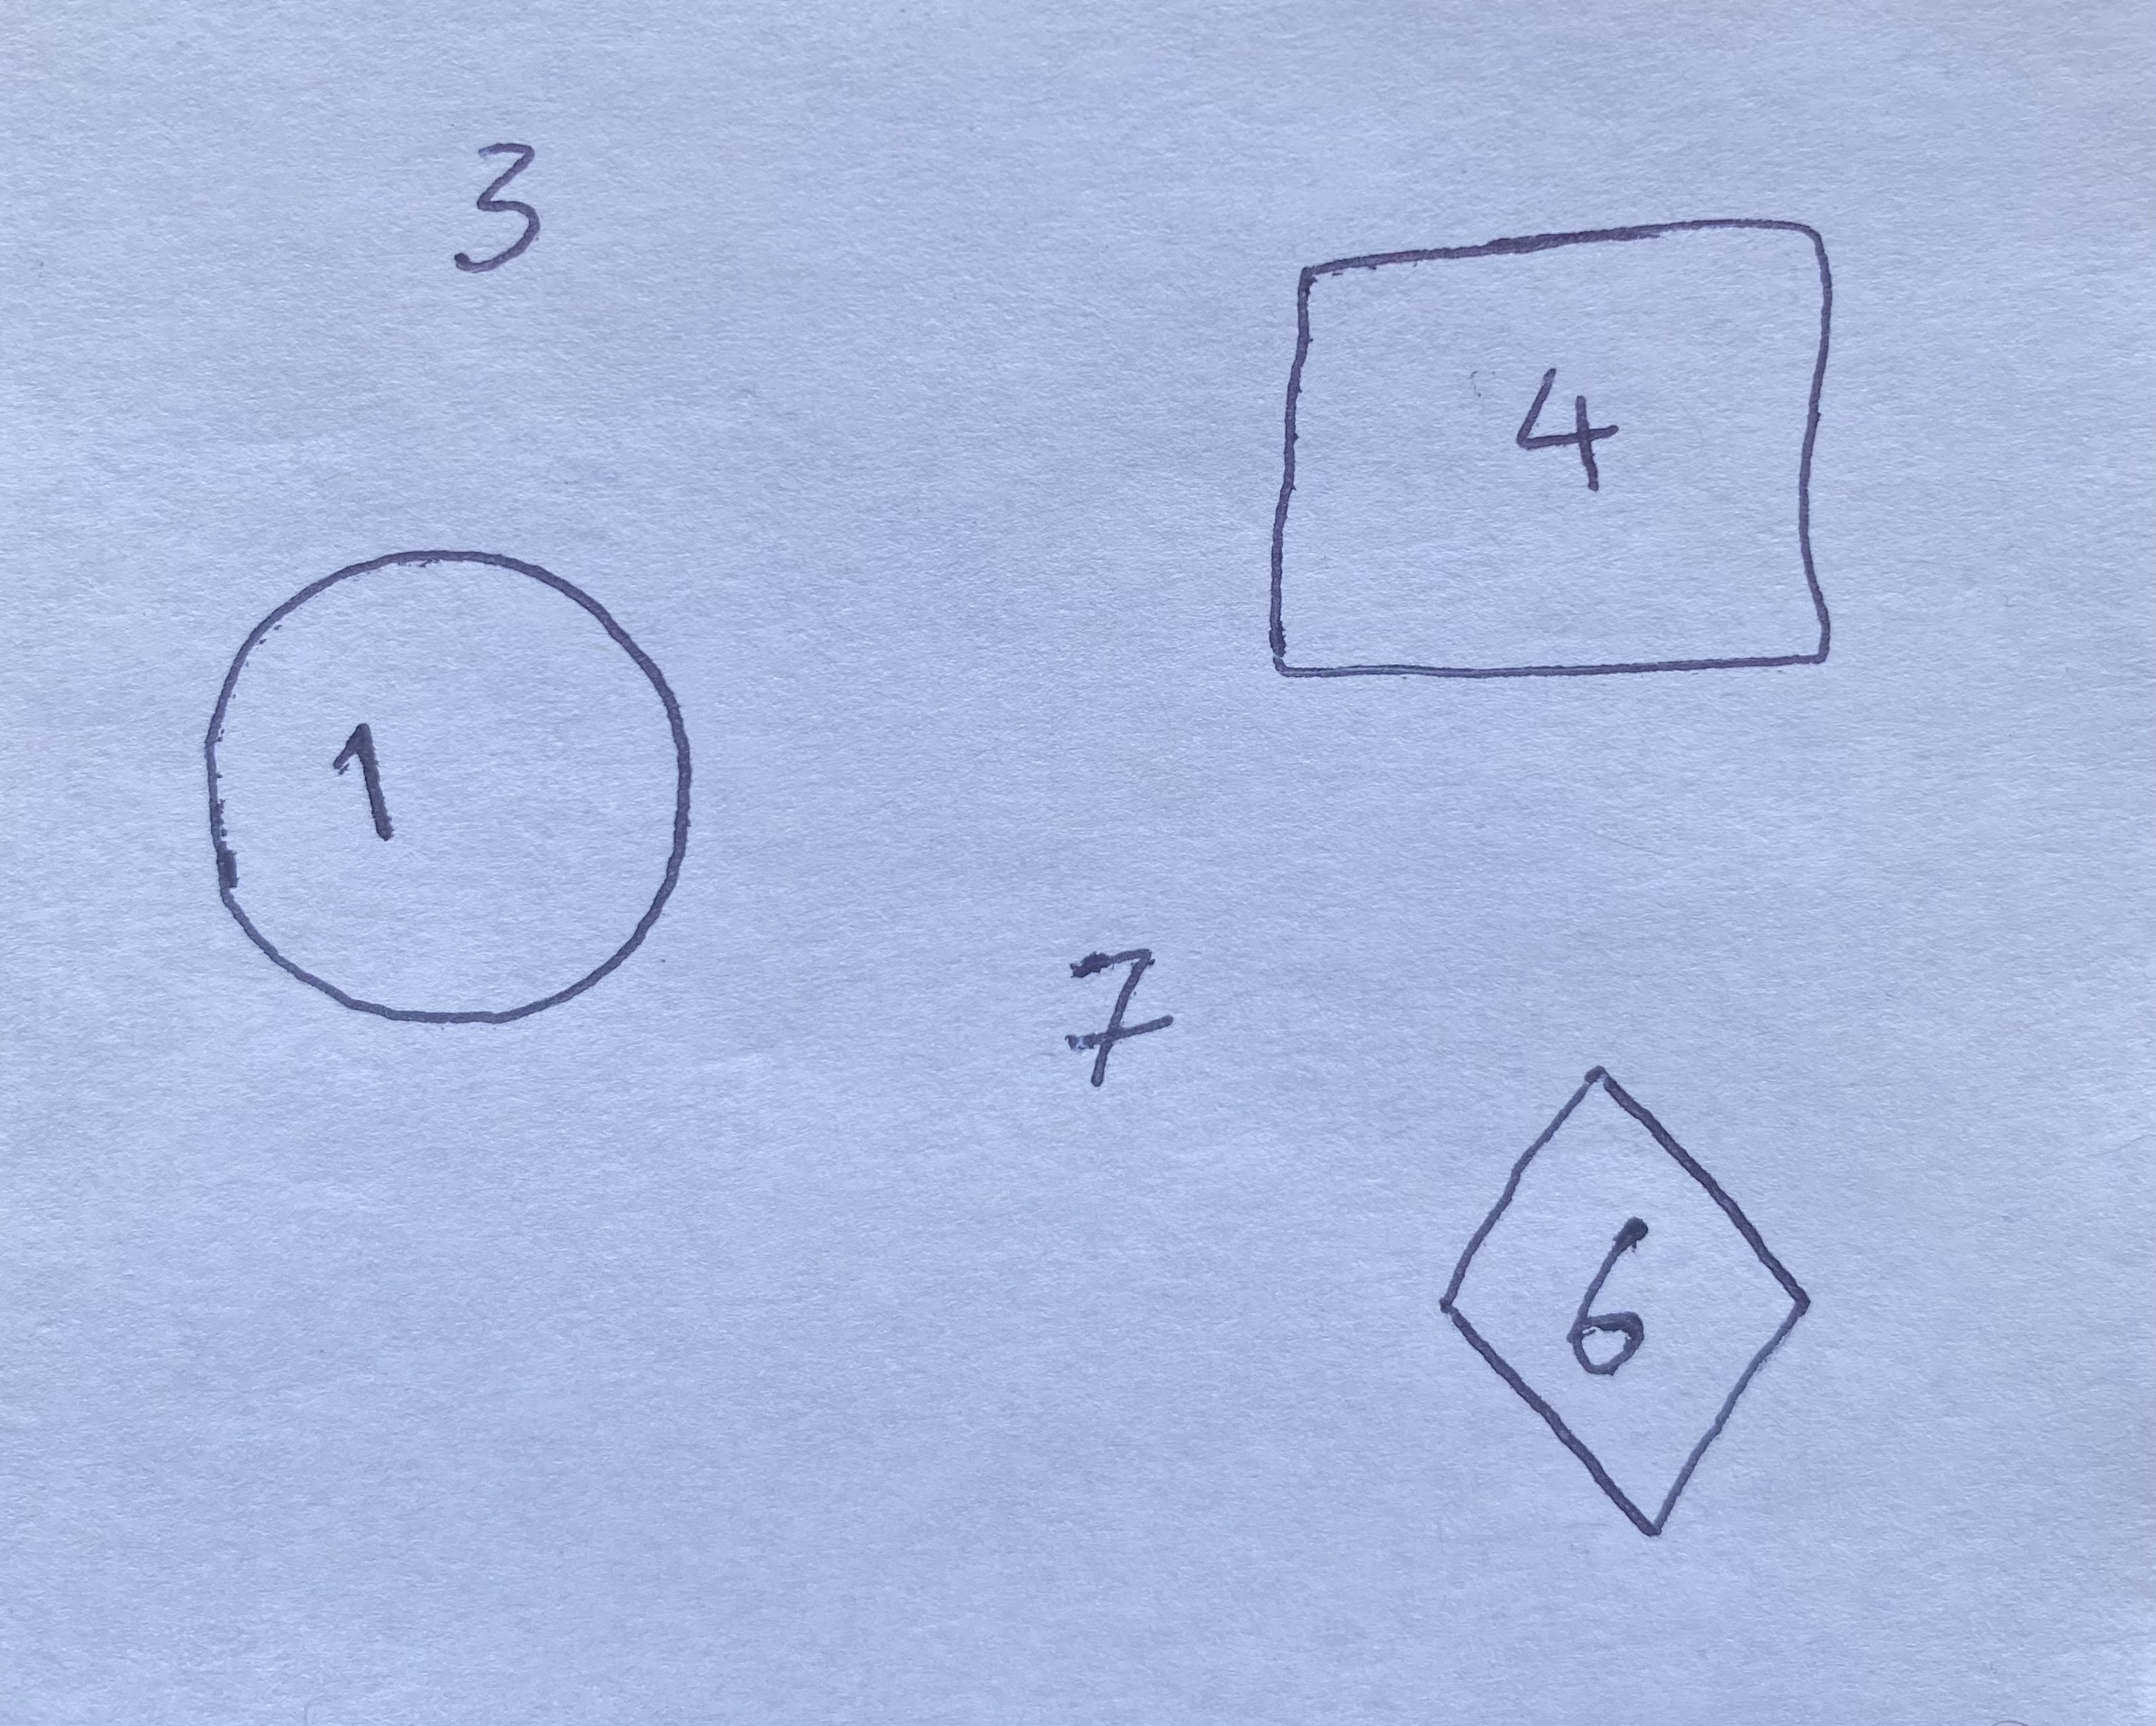 3
4
1
7
6